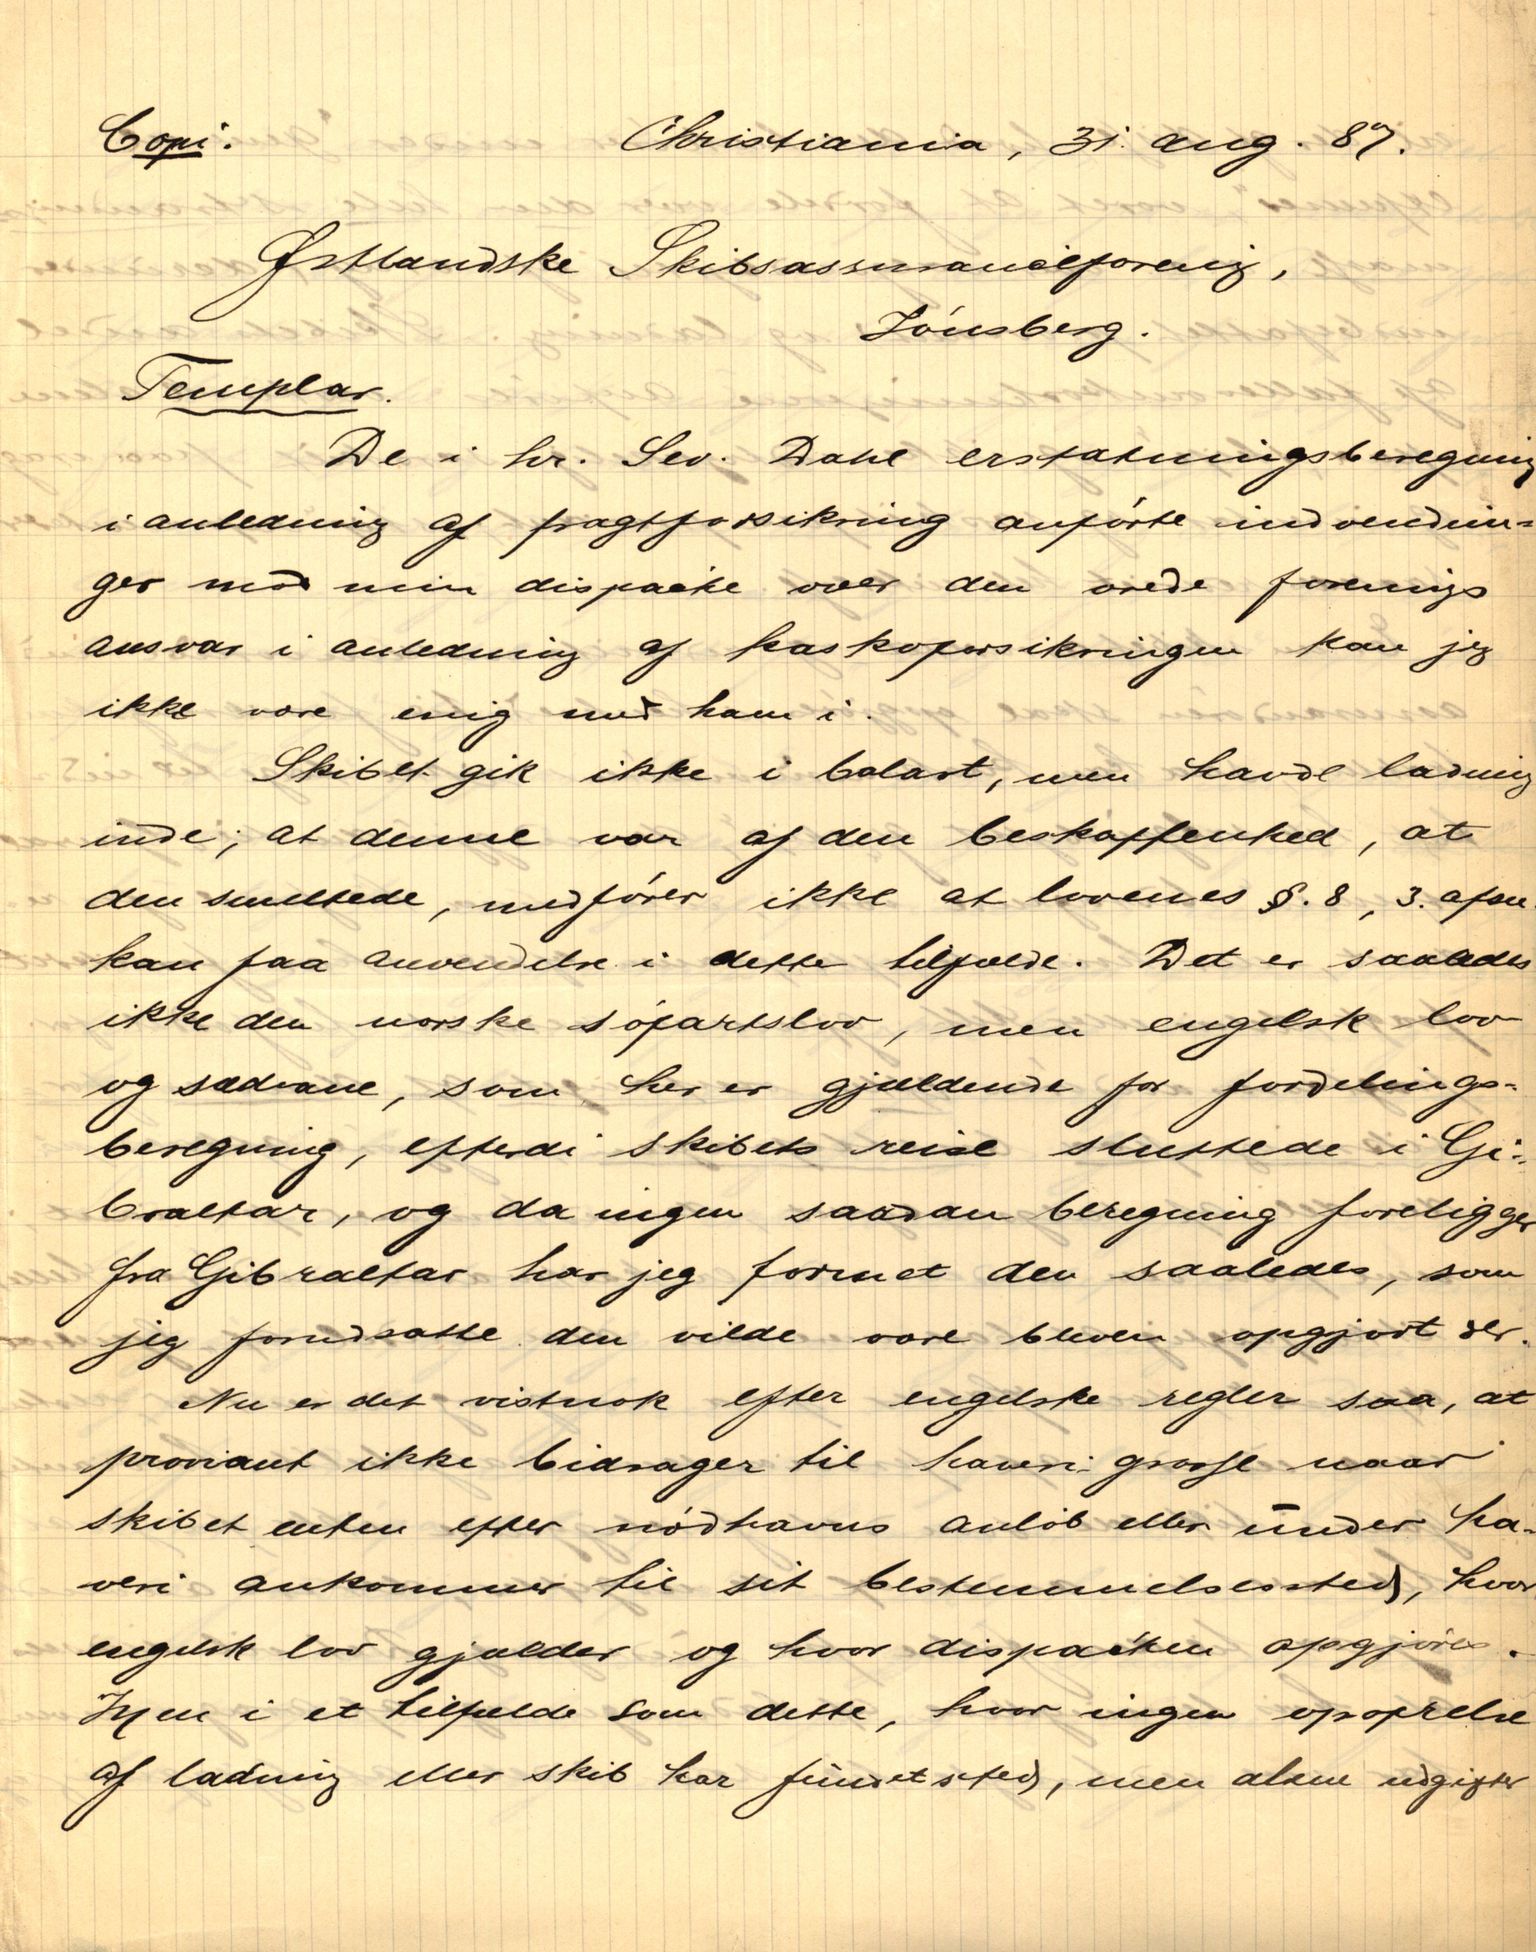 Copi. Christiania, 31. aug. 87.
Østlandske Skibsassuranceforenig,
Tønsberg.
Templar.
De i hr. Sev. Dahl erstatningsberegning
i anledning af fragtforsikring anførte indvendin-
ger mod min dispache over den ærede forenigs
ansvar i anledning af kaskoforsikringen kan jeg
ikke være enig med ham i.
Skibet gik ikke i balast, men havde ladning
inde; at denne var af den beskaffenhed, at
den smeltede, medfører ikke at lovenes §. 8, 3. afsn.
kan faa anvendelse i dette tilfælde. Det er saaledes
ikke den norske søfartslov, men engelsk lov
og sædvane, som her er gjældende for fordelings-
beregning, efterdi skibets reise sluttede i Gi-
braltar, og da ingen saadan beregning foreligger
fra Gibraltar har jeg formet den saaledes, som
jeg forudsatte den vilde være bleven opgjort der.
Nu er det vistnok efter engelske regler saa, at
proviant ikke bidrager til haveri-grosse naar
skibet enten efter nødhavns anløb eller under ha-
veri ankommer til sit bestemmelsessted, hvor
engelsk lov gjælder og hvor dispachen opgjøres.
Men i et tilfælde som dette, hvor ingen opofrelse
af ladning eller skib har fundet sted, men alene udgifter